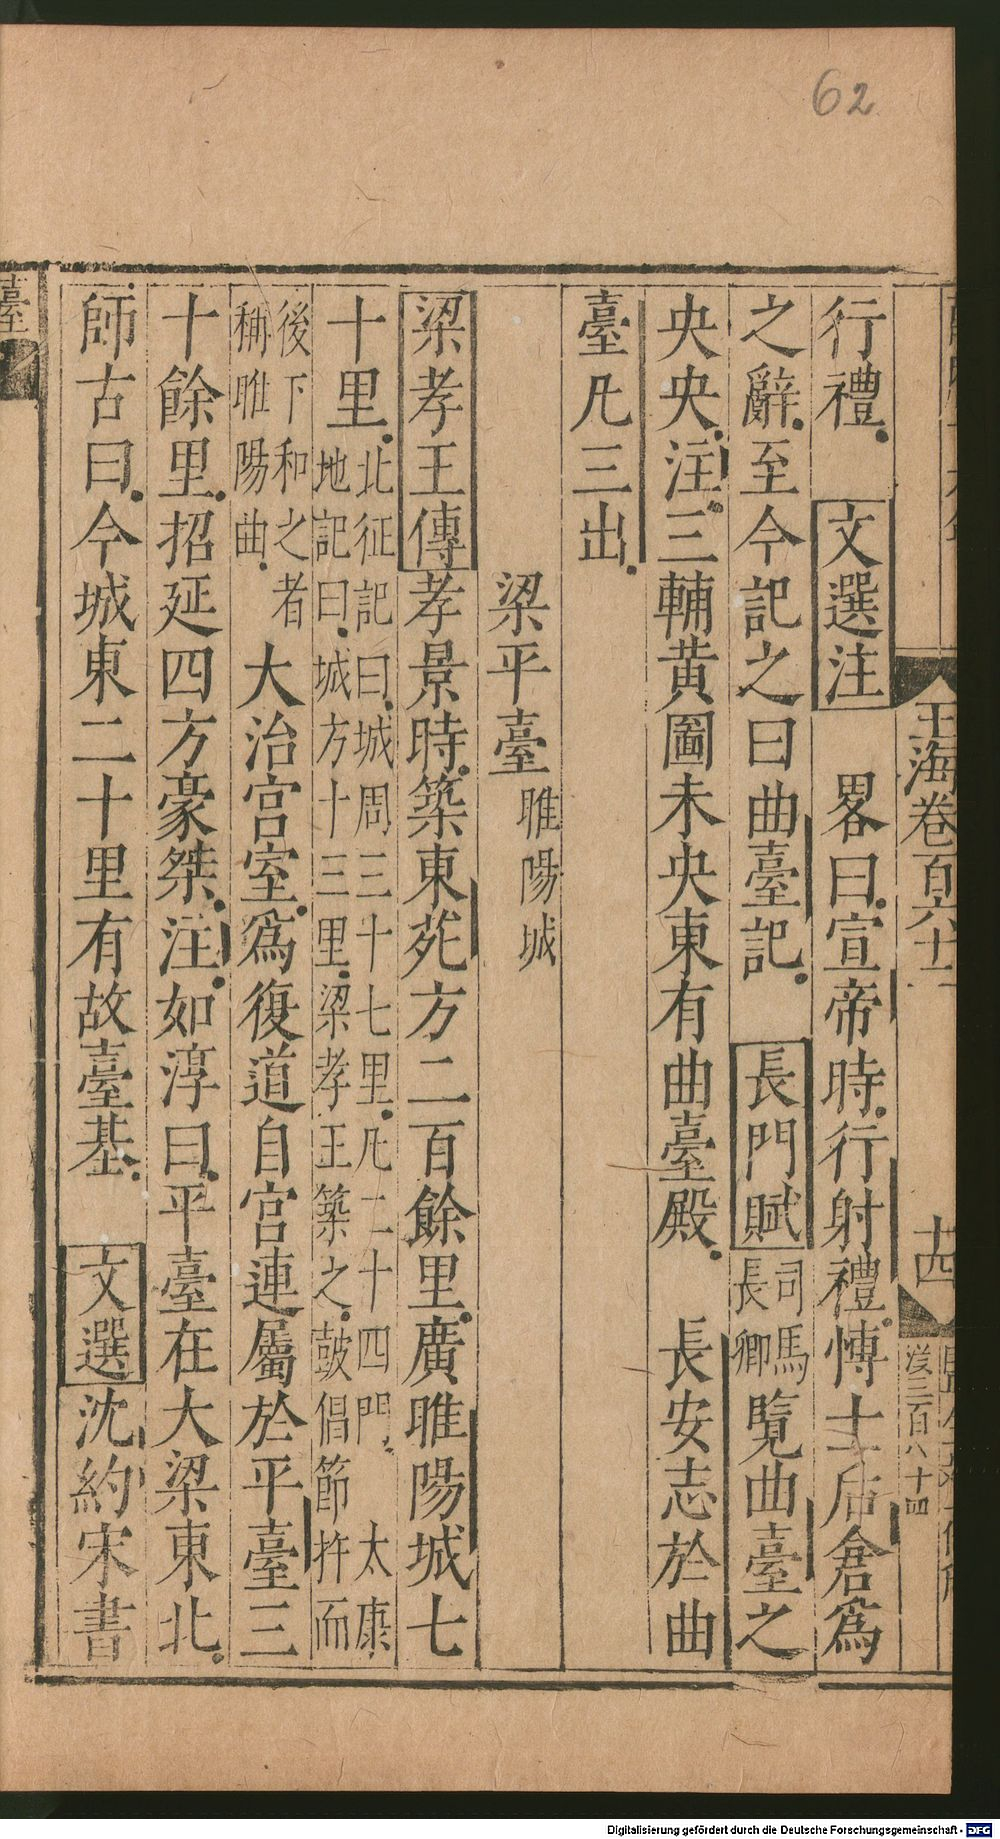 62
玉海卷百六十二
十四
行禮 文選注 畧曰宣帝時行射禮博士后倉爲
之辭至今記之曰曲臺記 長門賦司馬長卿覽曲臺之
央央注三輔黄圖未央東有曲臺殿 長安志於曲
臺凡三出
梁平臺睢陽城
梁孝王傳孝景時築東苑方二百餘里廣睢陽城七
十里北征記曰城周三十七里凡二十四門 太康地記曰城方十三里梁孝王築之鼓倡節杵而
後下和之者稱睢陽曲大治宮室爲復道自宮連屬於平臺三
十餘里招延四方豪桀注如淳曰平臺在大梁東北
師古曰今城東二十里有故臺基 文選沈約宋書
臺
Digitalisierung gefördert durch die Deutsche Forschungsgemeinschaft - DFG